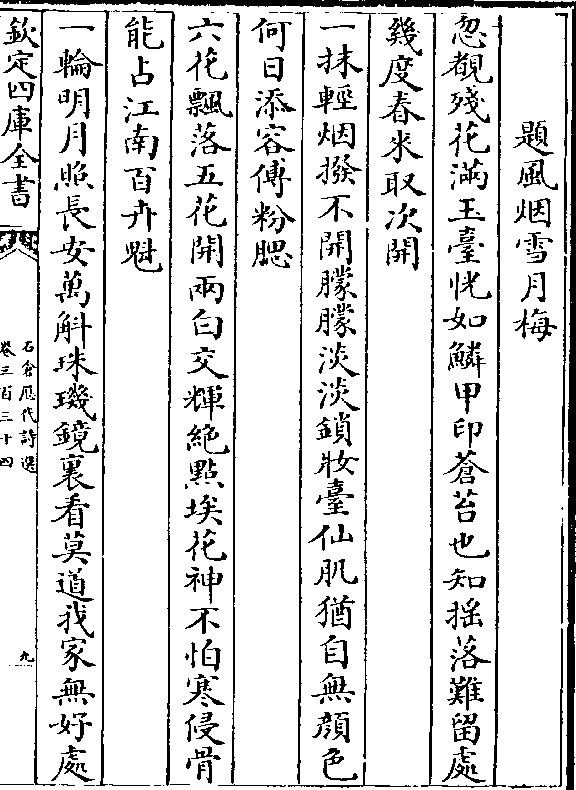 題風烟雪月梅
忽覩殘花滿玉臺恍如鱗甲印蒼苔也知揺落難留處
幾度春來取次開
一抹輕烟撥不開朦朦淡淡鎖妝臺仙肌猶自無顔色
何日添容傅粉腮
六花飄落五花開兩白交輝絶點埃花神不怕寒侵骨
能占江南百卉魁
一輪明月照長安萬斛珠璣鏡裏看莫道我家無好處
欽定四庫全書
石倉歴代詩選
卷三百三十四
九